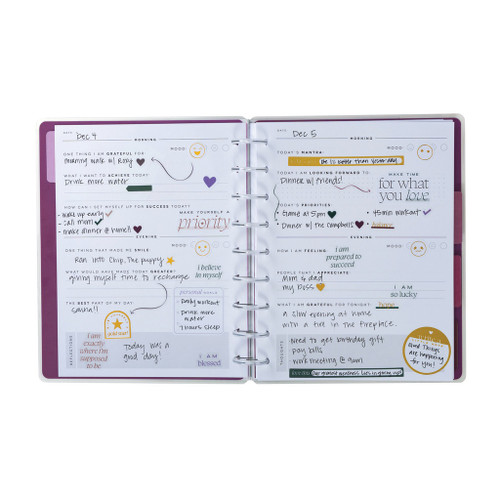 DATE: Dec 4
MORNING
MOOD:
ONE THING I AM GRATEFUL FOR:
Morning walk w/ Roxy
WHAT I WANT TO ACHIEVE TODAY:
Drink more water
HOW CAN I SET MYSELF UP FOR SUCCESS TODAY?
• wake up early
• Call Mom
• make dinner @
MAKE YOURSELF A
priority
EVENING
ONE THING THAT MADE ME SMILE
MOOD:
Ran into Chip, the puppy
WHAT WOULD HAVE MADE TODAY GREATER?
giving myself time to recharge
I believe
in myself
THE BEST PART OF MY DAY
personal goals
Daily workout
drink more
water
7 hours sleep
I am
exactly
where I'm
supposed
to be
Today was a
good day!
I AM
blessed
DATE: Dec 5
MORNING
TODAY'S MANTRA:
MOOD:
Be better than
TODAY I AM LOOKING FORWARD TO:
Dinner w/ friends!
MAKE TIME
for what
you love
TODAY'S PRIORITIES:
• Game at 5pm
• 45min workout
• Dinner w/ The Campbells
EVENING
HOW I AM FEELING:
MOOD:
I am
prepared to
succeed
PEOPLE THAT I APPRECIATE
Mom & dad
my boss
I AM
so lucky
WHAT I AM GRATEFUL FOR TONIGHT:
home
a slow evening at home
with a fire in the fireplace.
THOUGHTS
need to get birthday gift
pay bills
work meeting @ 9am
Good Things
are happening
for you!